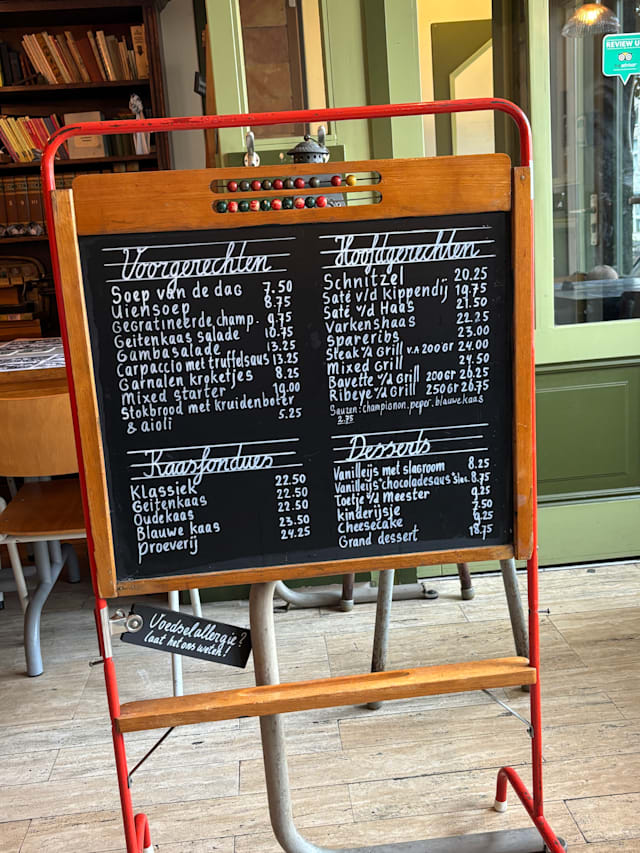 REVIEW U
Voorgerechten
Soep van de dag 7.50
Uiensoep 8.75
Gegratineerde champ. 9.75
Geitenkaas salade 10.75
Gambasalade 13.25
Carpaccio met truffelsaus 13.25
Garnalen kroketjes 8.25
Mixed starter 19.00
Stokbrood met kruidenboter
& aioli 5.25
Hoofdgerechten
Schnitzel 20.25
Saté v/d kippendij 19.75
Saté v/d Haas 21.50
Varkenshaas 22.25
spareribs 23.00
Steak v/d Grill v.a 200 gr 24.00
Mixed Grill 24.50
Bavette v/d Grill 200 gr 26.25
Ribeye v/d Grill 250 gr 26.75
Sauzen: champignon. peper. blauwe kaas
2.75
Kaasfondues
Klassiek 22.50
Geitenkaas 22.50
Oudekaas 22.50
Blauwe kaas 23.50
proeverij 24.25
Desserts
Vanilleijs met slagroom 8.25
Vanilleijs "chocoladesaus" 8.75
Toetje v/d Meester 9.25
kinderijsje 7.50
Cheesecake 9.25
Grand dessert 18.75
Voedselallergie?
laat het ons weten!